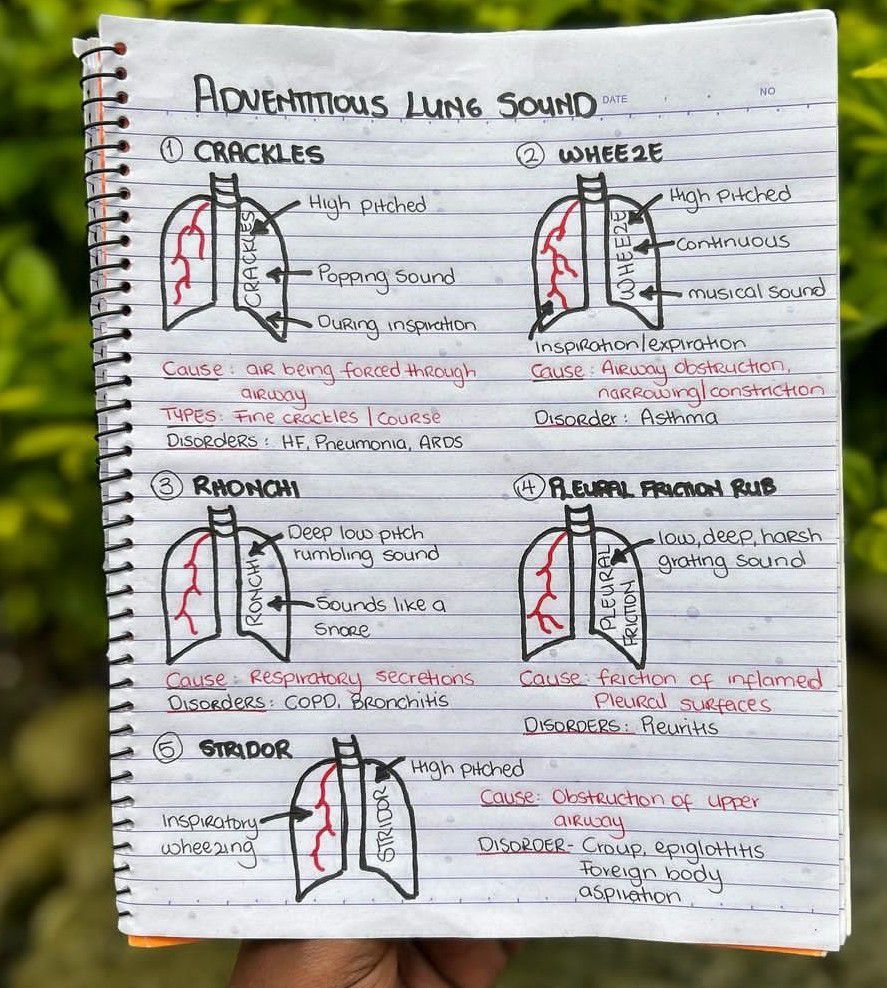 ADVENTITIOUS LUNG SOUND
DATE
NO
① CRACKLES
High pitched
CRACKLES
Popping sound
During inspiration
Cause: air being forced through
airway
TYPES: Fine crackles / Course
Disorders: HF, Pneumonia, ARDS
② WHEEZE
High pitched
WHEEZE
Continuous
musical sound
Inspiration/expiration
Cause: Airway obstruction,
narrowing/constriction
Disorder: Asthma
③ RHONCHI
Deep low pitch
rumbling sound
RONCHI
Sounds like a
snore
Cause: Respiratory secretions
Disorders: COPD, Bronchitis
④ PLEURAL FRICTION RUB
low, deep, harsh
grating sound
PLEURAL
FRICTION
Cause: friction of inflamed
Pleural surfaces
DISORDERS: Pleuritis
⑤ STRIDOR
High pitched
STRIDOR
Inspiratory
wheezing
Cause: Obstruction of upper
airway
DISORDER- Croup, epiglottitis
Foreign body
aspiration